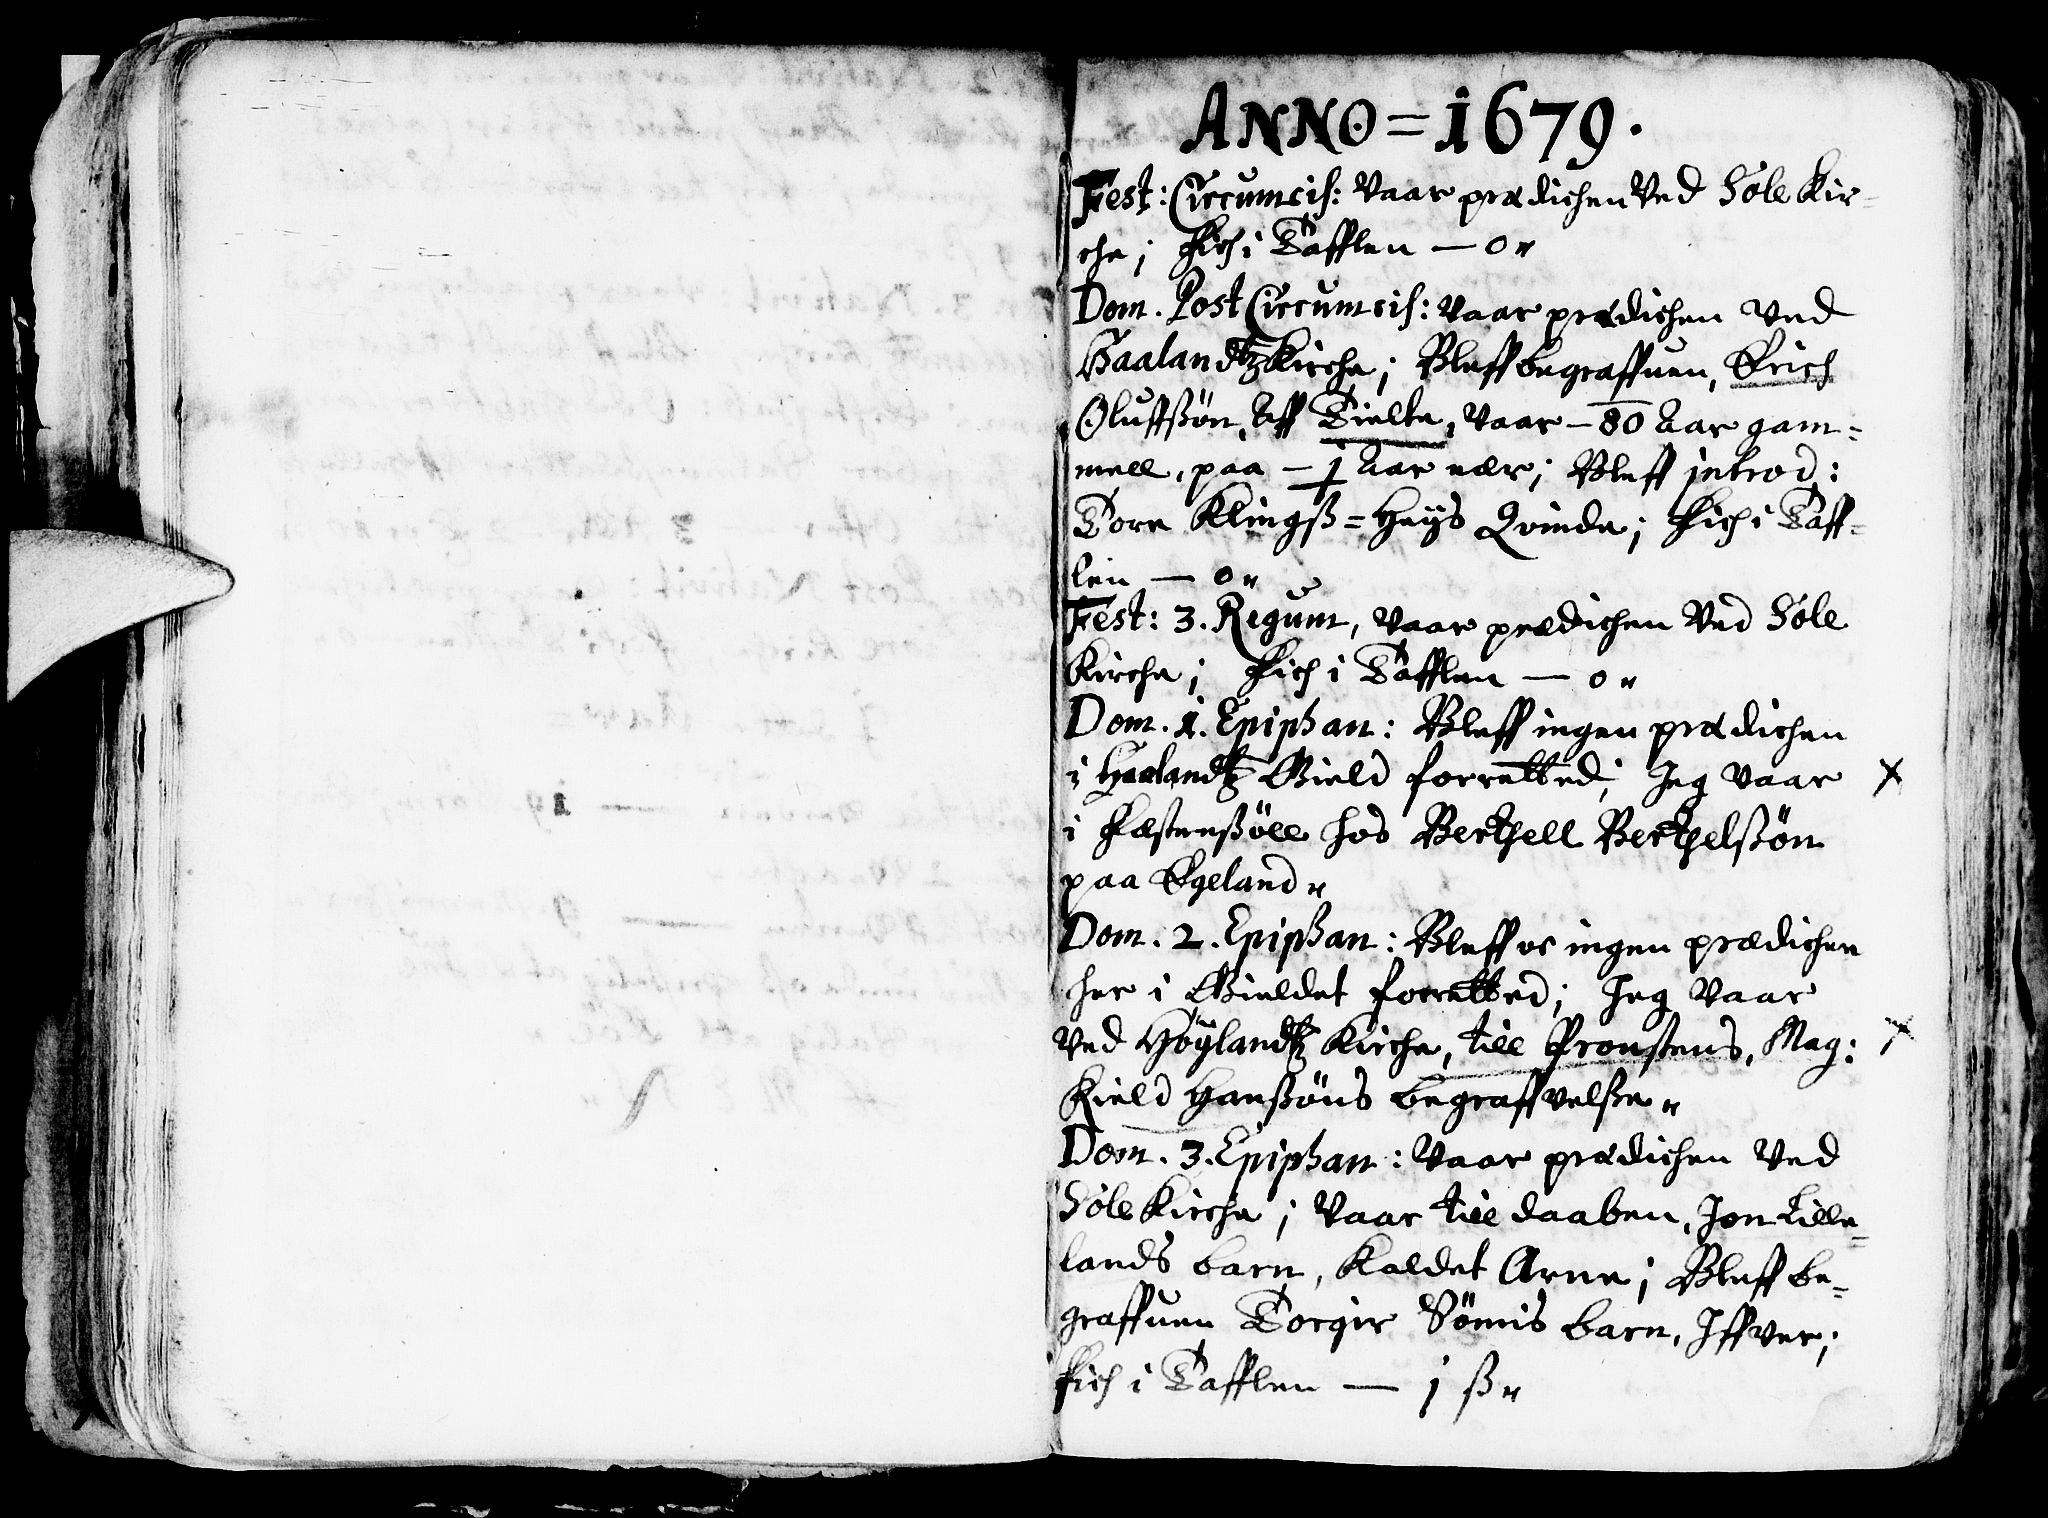 ANNO = 1679.
Fest: Circumcis: vaar prædichen ved Sole Kir=
che; Fich i Tafflen — 0"
Dom. Post Circumcis: vaar prædichen ved
Haalandtz Kirche; Bleff begraffuen, Erich
Oluffßøn, Aff Tielte, vaar — 80 Aar gam=
mell, paa — j Aar nær; Bleff introd:
Tore Klingß=Heÿs Qvinde; Fich i Taff=
len — 0"
Fest: 3. Regum, vaar prædichen ved Sole
Kirche; Fich i Tafflen — 0"
Dom. 1. Epiphan: Bleff ingen prædichen
i Haalandtz Gield forretted; Jeg vaar
i Fæstenßöll hos Berthell Berthelßøn
paa Egeland"
Dom. 2. Epiphan: Bleff oc ingen prædichen
her i Gieldet forretted; Jeg vaar
ved Höÿlandtz Kirche, till Proustens, Mag:
Kield Hanßøns begraffvelße"
Dom. 3. Epiphan: vaar prædichen ved
Sole Kirche; vaar till daaben, Jon Lille=
lands barn, Kaldet Arne; Bleff be=
graffuen Torgir Sömis barn, Iffver;
Fich i Tafflen — j ß"